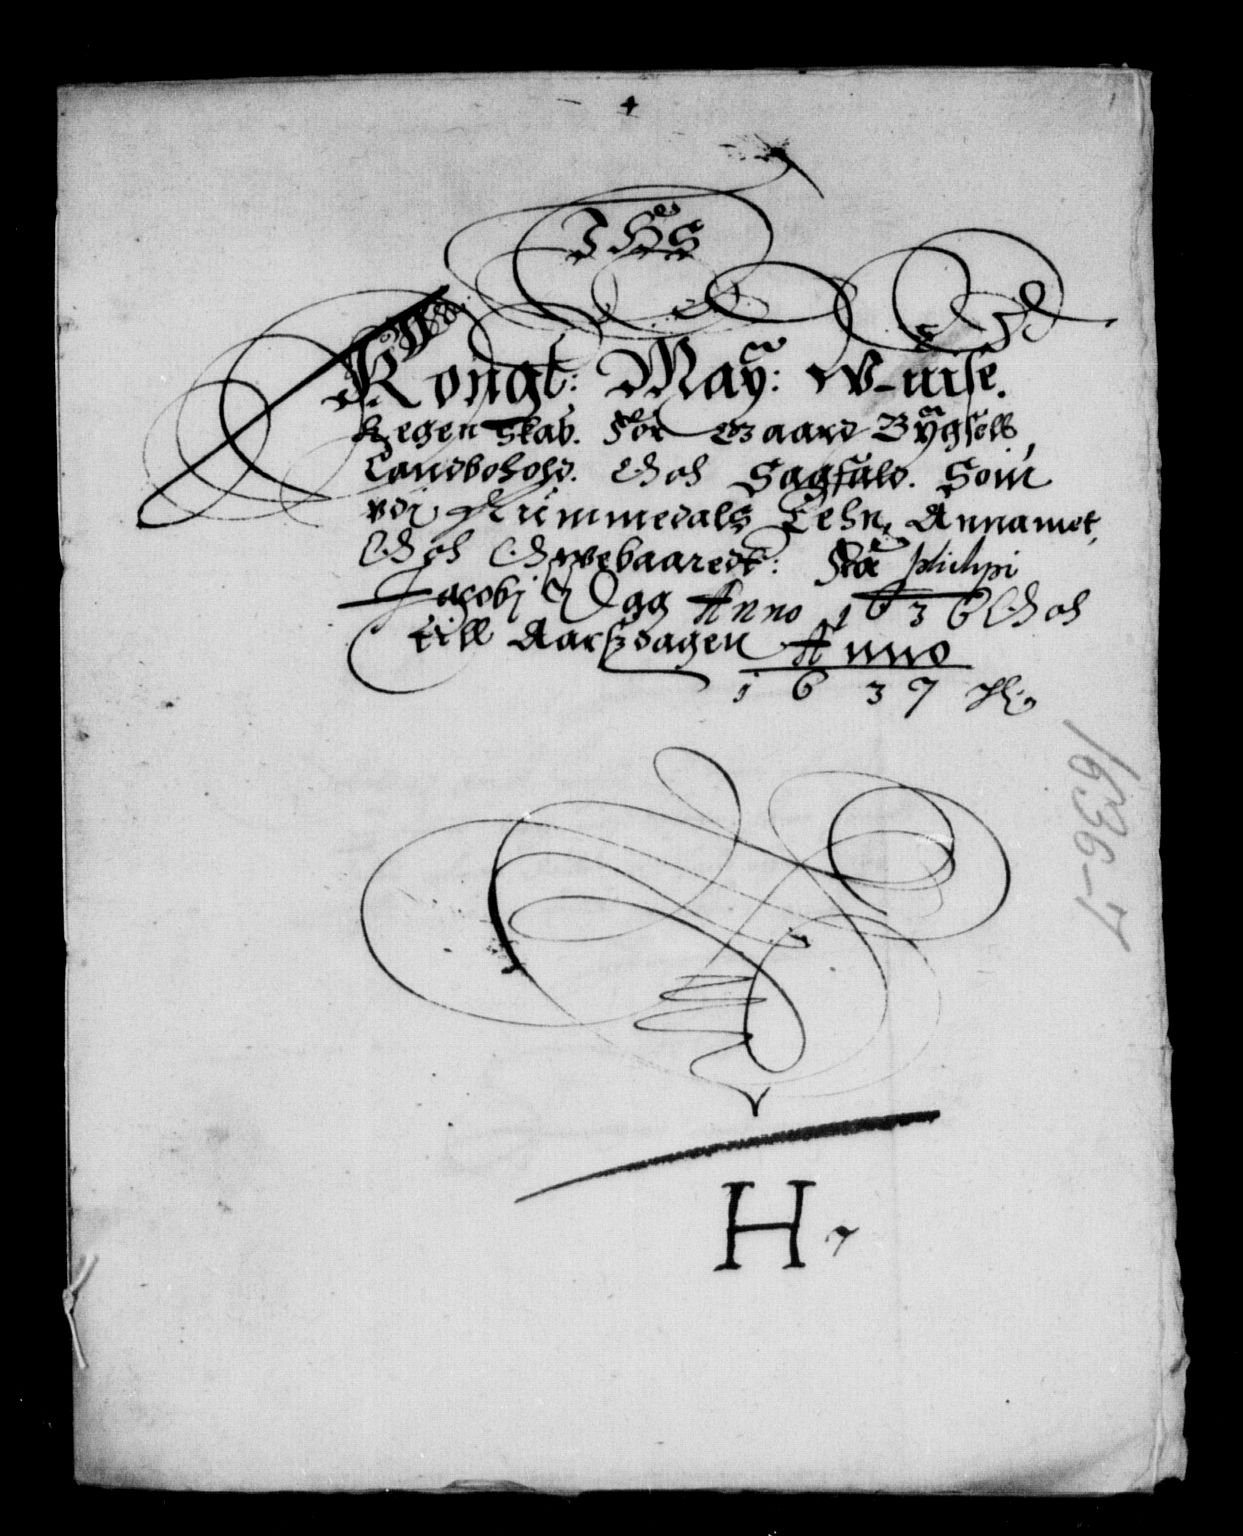 IHS
Kongl: May: W-uise.
Regenskab. For Gaard Bygsell,
Landbohold. Och Sagfald. Som
vdi Nummedals Lehn, Annamet,
Och Opebaaredt: fra philipi
Jacobj Dag Anno 1636 Och
till Aarsdagen Anno
1637
1636-7
H